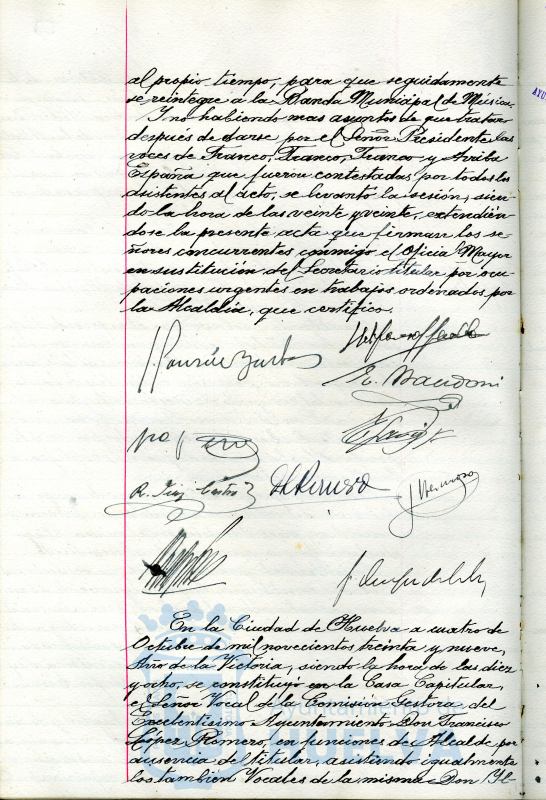 al propio tiempo, para que seguidamente
se reintegre a la Banda Municipal de Música.
Y no habiendo mas asuntos de que tratar
después de darse por el Señor Presidente las
voces de Franco, Franco, Franco y Arriba
España que fueron contestadas por todos los
asistentes al acto, se levantó la sesión, sien-
do la hora de las veinte y veinte, extendién
dose la presente acta que firman los se-
ñores concurrentes conmigo el Oficial Mayor
en sustitución del Secretario titular por ocu-
paciones urgentes en trabajos ordenados por
la Alcaldía, que certifico.
E. Mandoni
J. Hermoso
En la Ciudad de Huelva a cuatro de
Octubre de mil novecientos treinta y nueve,
Año de la Victoria, siendo la hora de las diez
y ocho, se constituyó en la Casa Capitular,
el Señor Vocal de la Comisión Gestora del
Excelentísimo Ayuntamiento Don Francisco
López Romero, en funciones de Alcalde por
ausencia del titular, asistiendo igualmente
los tambien Vocales de la misma Don Il-
Ayuntamiento de
HUELVA